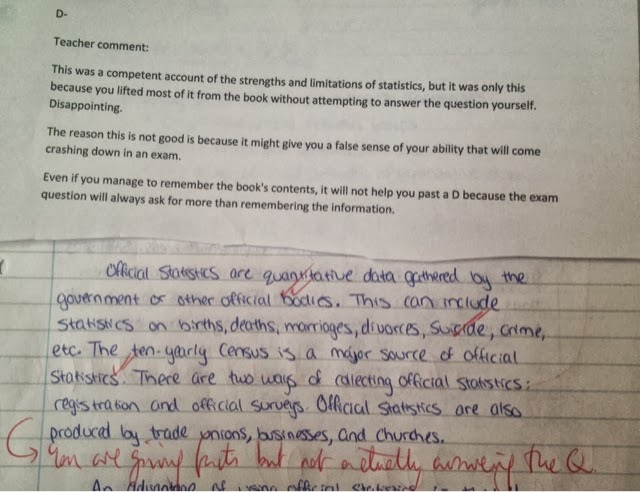 D-
Teacher comment:
This was a competent account of the strengths and limitations of statistics, but it was only this
because you lifted most of it from the book without attempting to answer the question yourself.
Disappointing.
The reason this is not good is because it might give you a false sense of your ability that will come
crashing down in an exam.
Even if you manage to remember the book's contents, it will not help you past a D because the exam
question will always ask for more than remembering the information.
Official Statistics are quantitative data gathered by the
government or other official bodies. This can include
statistics on births, deaths, marriages, divorces, suicide, crime,
etc. The ten-yearly Census is a major source of official
statistics. There are two ways of collecting official statistics:
registration and official surveys. Official statistics are also
produced by trade unions, businesses, and churches.
You are giving facts but not actually answering the Q.
An Advantage of using official statistics is